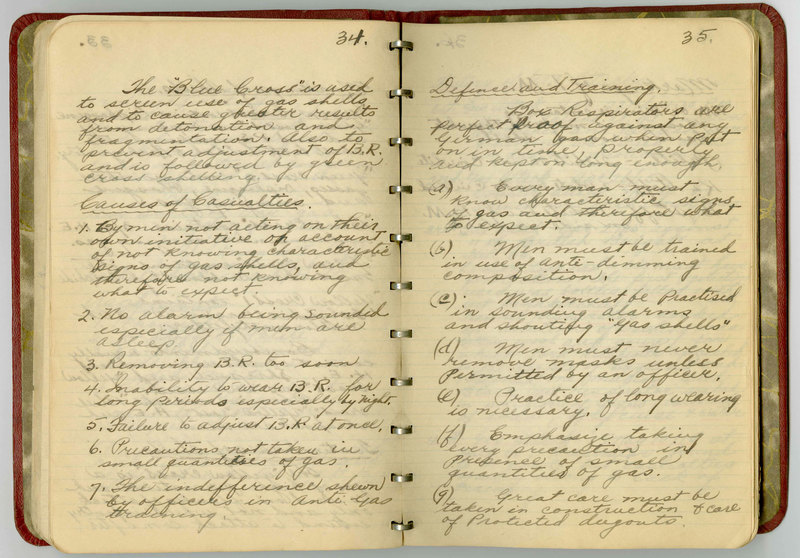 34.
The "Blue Cross" is used
to screen use of gas shells
and to cause greater results
from detonation and
fragmentation. Also to
prevent adjustment of B.R.
and is followed by green
cross shelling.
Causes of Casualties.
1. By men not acting on their
own initiative on account
of not knowing characteristic
signs of gas shells, and
therefore not knowing
what to expect.
2. No alarm being sounded
especially if men are
asleep.
3. Removing B.R. too soon
4. Inability to wear B.R. for
long periods especially by night.
5. Failure to adjust B.R at once.
6. Precautions not taken in
small quantities of gas.
7. The indifference shewn
by officers in Anti Gas
training
35.
Defence and Training.
Box Respirators are
perfect proof against any
German gas when put
on in time, properly
and kept on long enough.
(a) Every man must
know characteristic signs
of gas and therefore what
to expect.
(b) Men must be trained
in use of anti-dimming
composition.
(c) Men must be Practised
in sounding alarms
and shouting "Gas shells"
(d) Men must never
remove masks unless
Permitted by an officer.
(e) Practice of long wearing
is necessary.
(f) Emphasize taking
every precaution in
Presence of small
quantities of gas.
(g) Great care must be
taken in construction & care
of Protected dugouts.